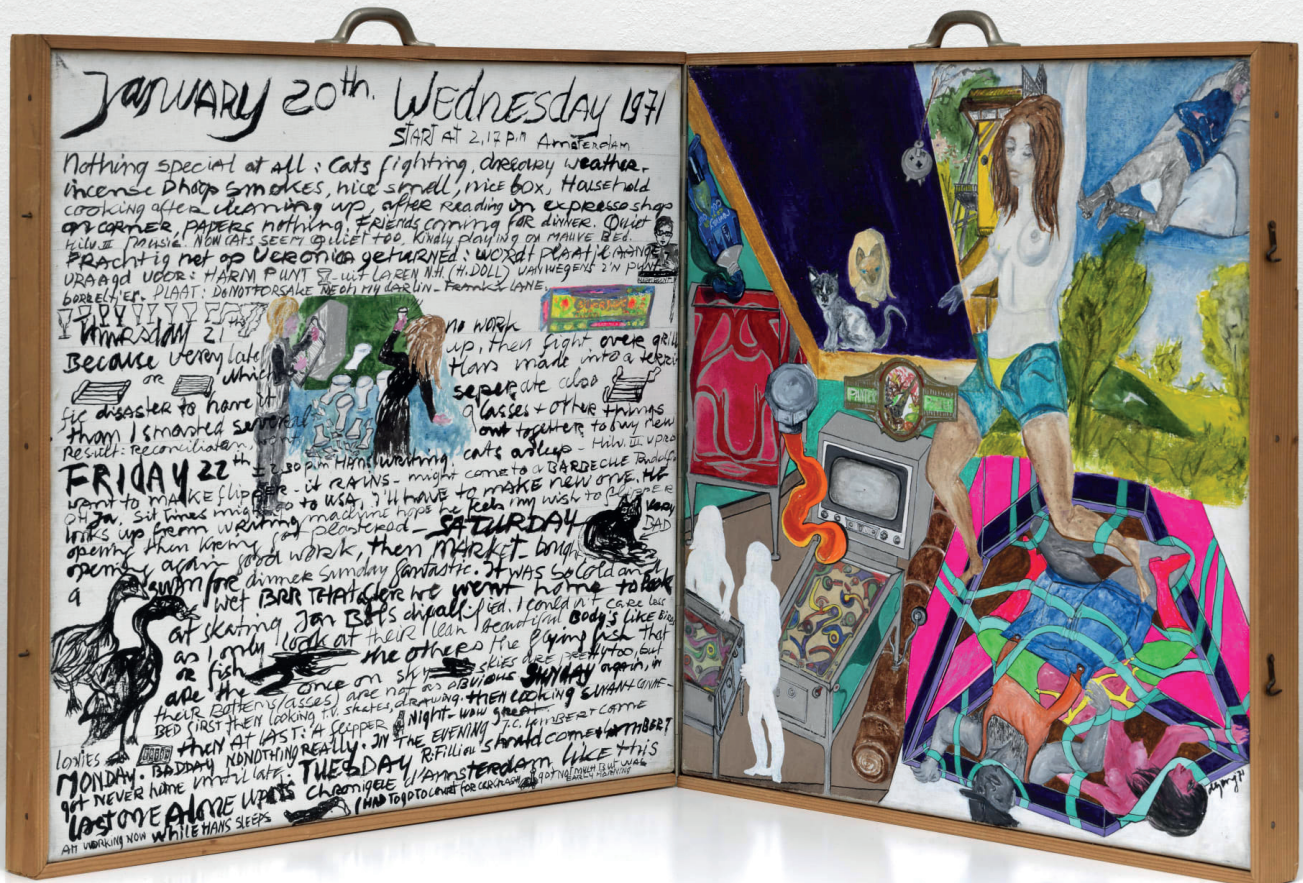 JANUARY 20th. Wednesday 1971
START AT 2,17 p.m Amsterdam
Nothing special at all: Cats fighting, dreary weather.
incense Dhoop smokes, nice smell, nice box, Household
cooking after cleaning up, after Reading in expresso shop
on corner, PAPERS nothing. Friends coming FOR dinner. Quiet
Hilv. III NOW CATS SEEM Quiet too, kindly playing on MAUVE Bed.
PRACHTIG net op VERONICA geturned: WORDT PLAATJE
VRAAGD VOOR: HARM PUNT uit LAREN N.H. (H. DOLL) VANWEGENS z'n PUNT
borreltjes. PLAAT: DO NOT FORSAKE ME OH MY DARLIN - Frankie LANE.
Thursday 21 no work
Because very late up, then fight over grill
or which Hans made into a terri
fic disaster to have it seperate also
than I smashed several glasses + other things
Result: reconciliation, went out together to buy new
FRIDAY 22th ± 2.30 p.m Hans writing cats asleep - Hilv. III
want to MAKE flipper - it RAINS - might come to a BARBECUE
oh Ja, Sil times might go to USA, I'll have to make new one. HE
looks up from writing machine hope he feels my wish to
opening then kreng got plastered - SATURDAY VERY BAD
opening again good work, then MARKET - bough
a SWAN for dinner Sunday fantastic. It was so cold and
wet BRR THAT after we went home to look
at skating Jan Bols disqualified. I couldn't care less
as I only look at their lean beautiful Body's like Birds
or fish the others the flying fish that
are the once on sky skies ARE pretty too, but
their Bottens/asses are not as obvious SUNDAY again, in
BED first then looking T.V. skates, drawing. then cooking SWAN
then AT LAST: A flipper Night - wow great.
LONIES
MONDAY. BADDAY NONOTHING REALLY. IN THE EVENING T.C. LAMBERT COME
got NEVER home until late. TUESDAY R. Filliou should come + LAMBERT
Last one Alone writes chronicele V/Amsterdam like this
I HAD TO GO TO COURT FOR CAR CRASH got NO! MUCH BUT WAS EARLY MORNING
AM WORKING NOW WHILE HANS SLEEPS